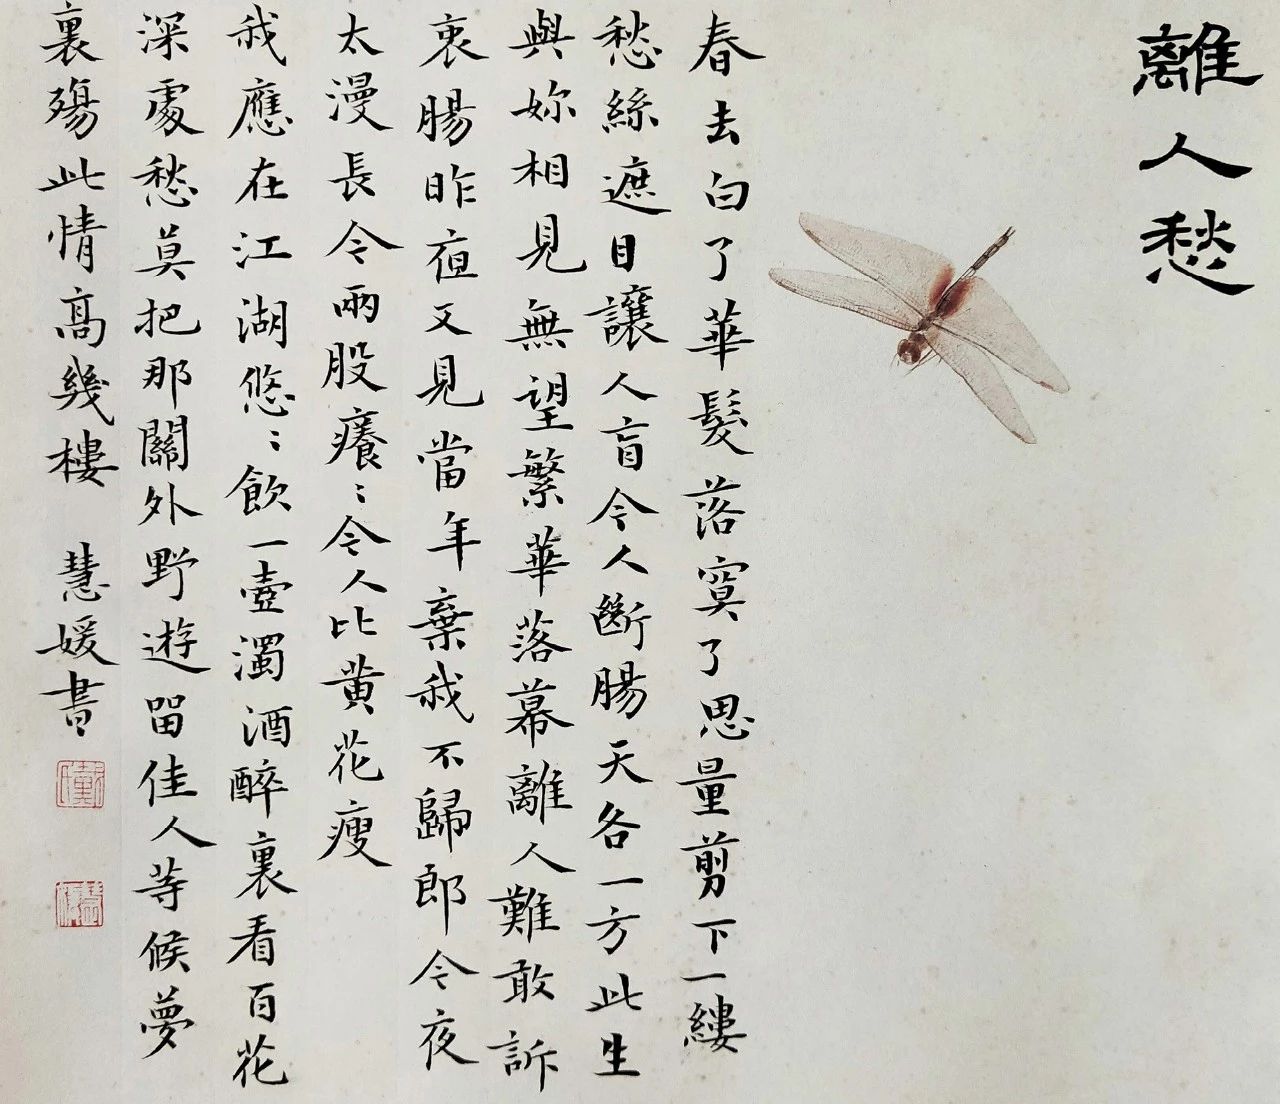 離人愁
春去白了華髮落寞了思量剪下一縷
愁絲遮目讓人盲令人斷腸天各一方此生
與妳相見無望繁華落幕離人難敢訴
衷腸昨夜又見當年棄我不歸郎今夜
太漫長令兩股癢〻令人比黄花瘦
我應在江湖悠〻飲一壺濁酒醉裏看百花
深處愁莫把那關外野遊留佳人等候夢
裏殤此情高幾樓 慧媛書